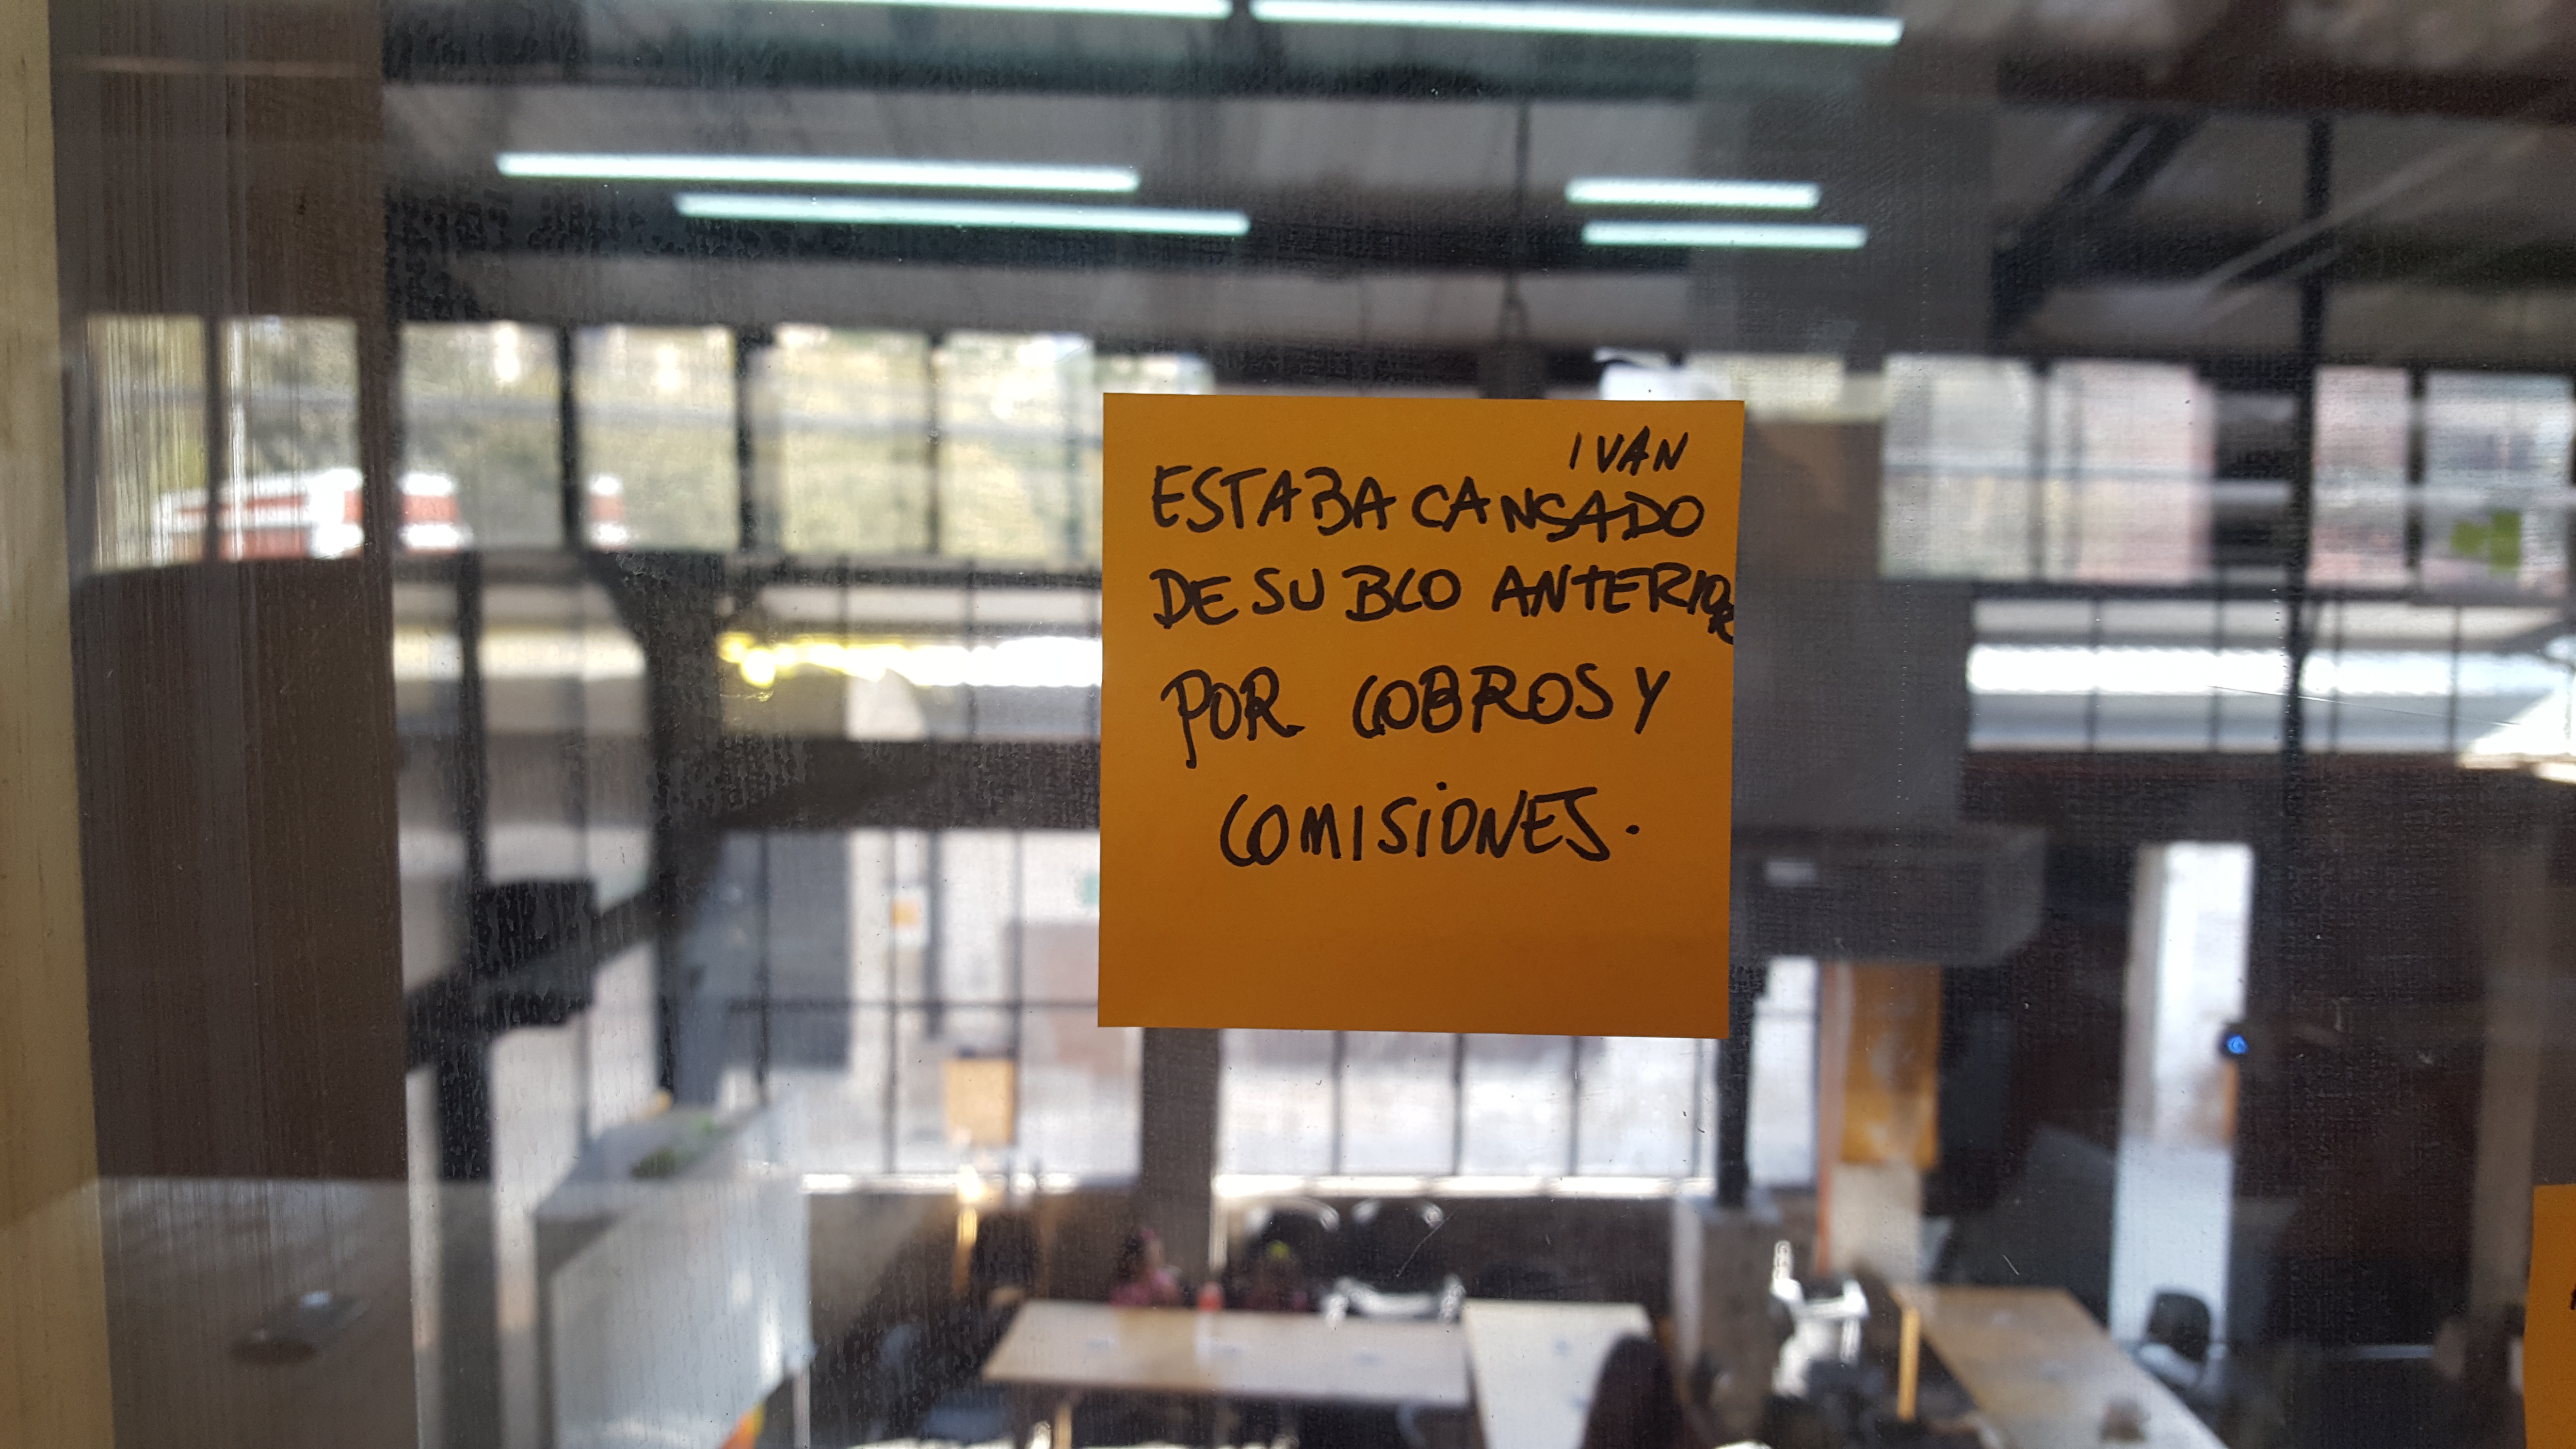 IVAN
ESTABA CANSADO
DE SU BCO ANTERIOR
POR COBROS Y
COMISIONES.